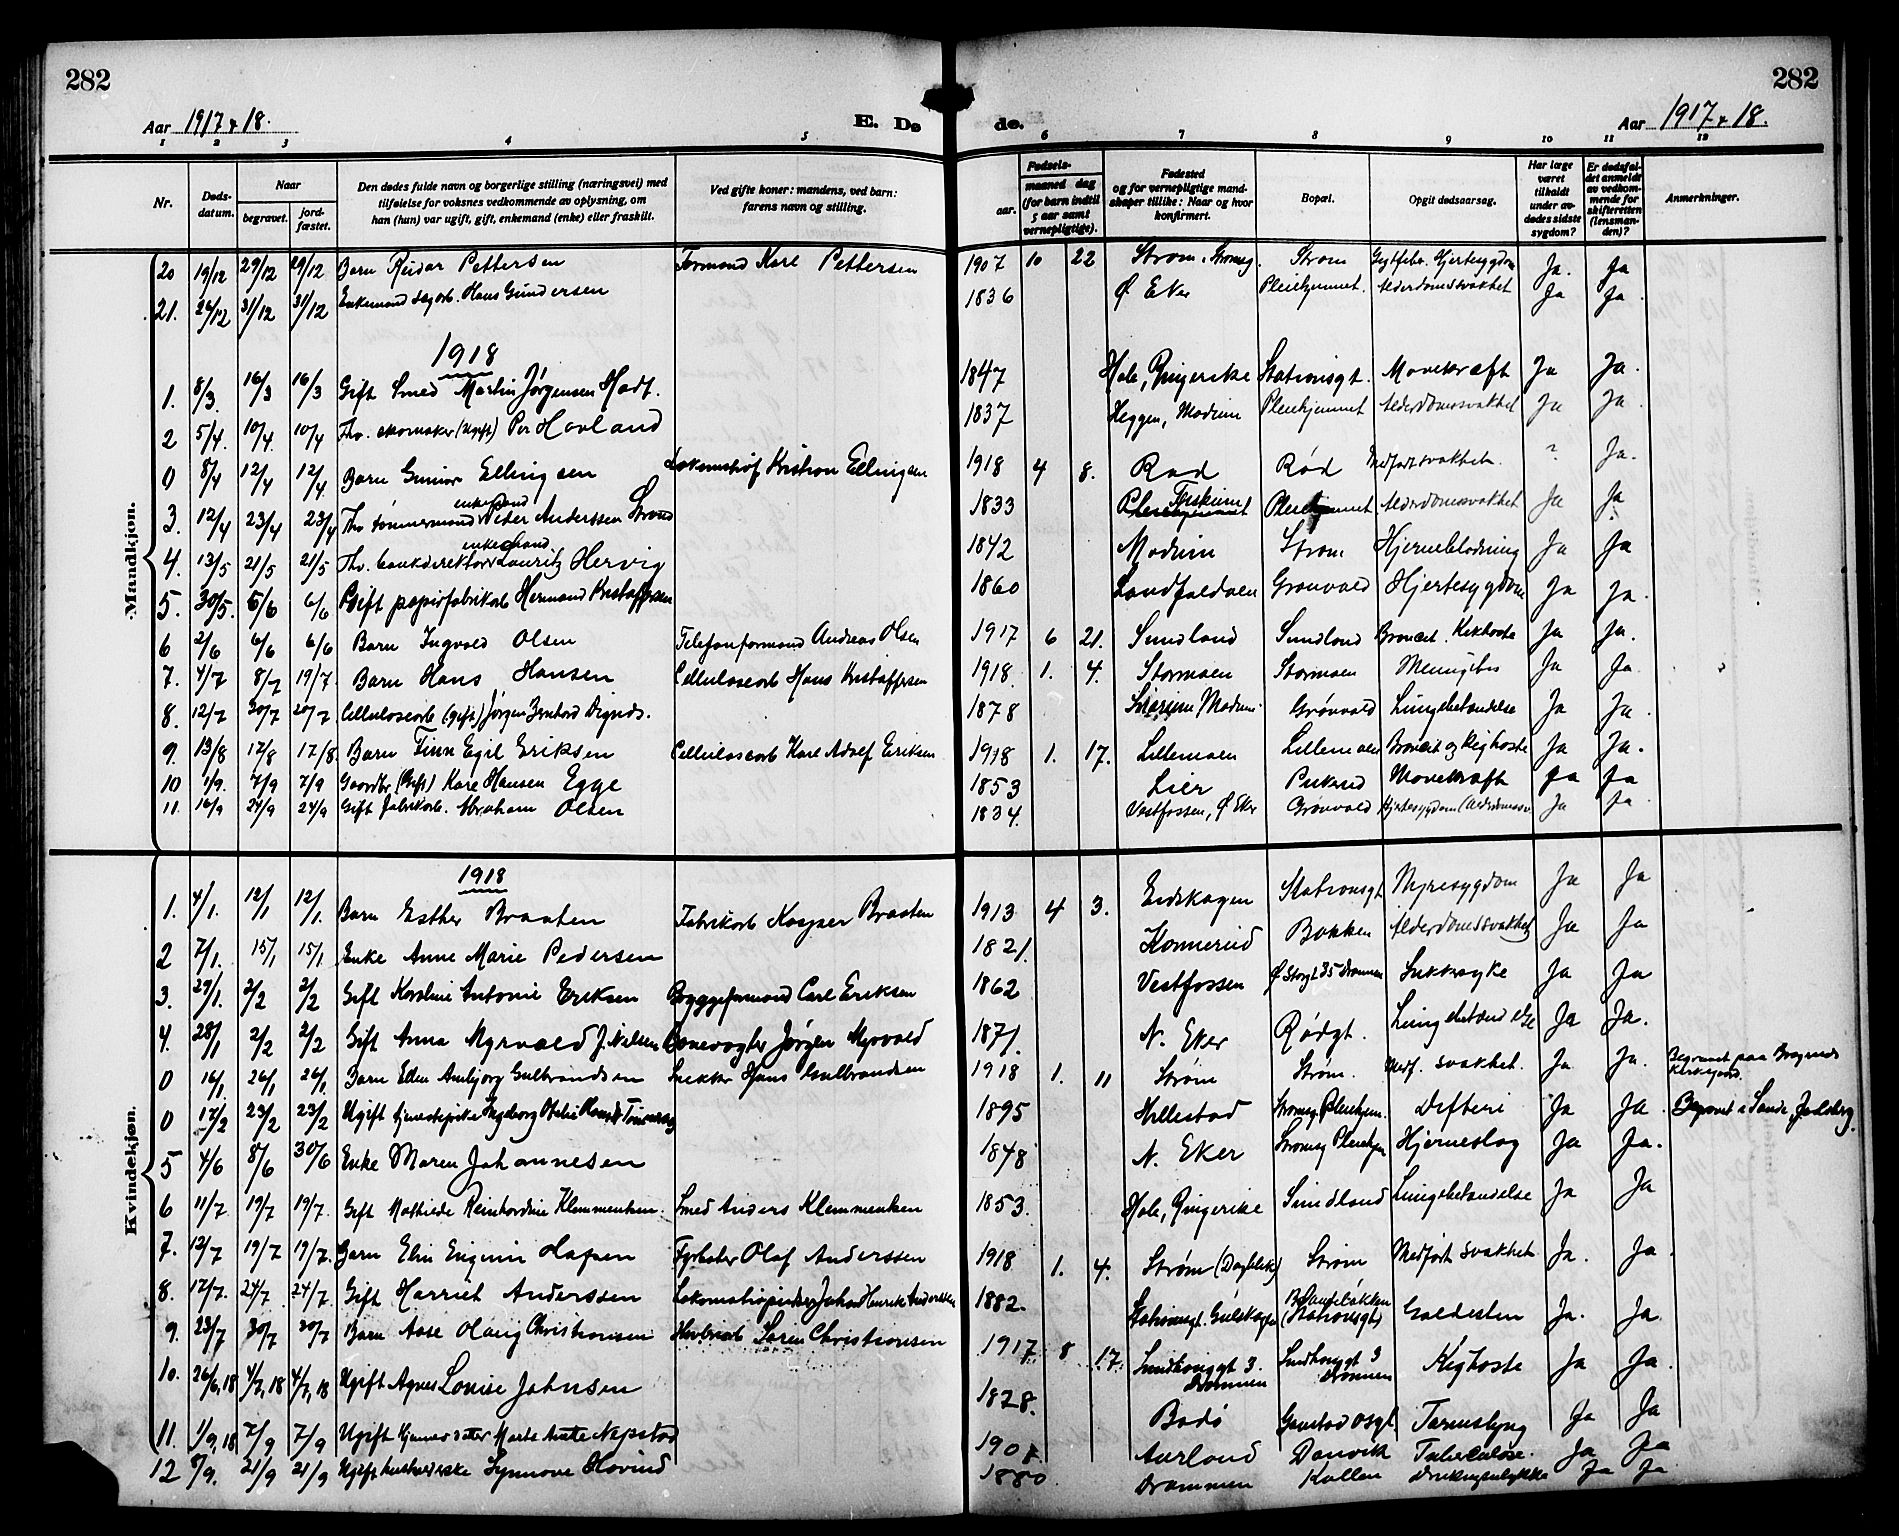 282
282
Aar 1917 & 18.
E. Dø
de.
Aar 1917 & 18.
1 2 3 4 5 6 7 8 9 10 11 12
Nr.
Døds-
datum.
Naar
begravet.
jord-
fæstet.
Den dødes fulde navn og borgerlige stilling (næringsvei) med
tilføielse for voksnes vedkommende av oplysning, om
han (hun) var ugift, gift, enkemand (enke) eller fraskilt.
Ved gifte koner: mandens, ved barn:
farens navn og stilling.
Fødsels-
aar.
maaned dag
(for barn indtil
5 aar samt
vernepligtige).
Fødested
og for vernepligtige mand-
skaper tillike: Naar og hvor
konfirmert.
Bopæl.
Opgit dødsaarsag.
Har læge
været
tilkaldt
under av-
dødes sidste
sygdom?
Er dødsfal-
det anmeldt
av vedkom-
mende for
skifteretten
(lensman-
den)?
Anmerkninger.
Mandkjøn.
20 19/12 29/12 29/12 Barn Reidar Pettersen Formand Karl Pettersen 1907 10 22 Strøm, Strømsg. Strøm Hjertesygdom Ja. Ja
21. 24/12 31/12 31/12 Enkemand Hans Gundersen 1836 Ø Eker Pleiehjemmet. Alderdomssvakhet Ja Ja
1918
1. 8/3. 16/3 16/3 Gift Smed Martin Jørgensen Hadt. 1847 Hole, Ringerike Stationsgt. Ja Ja.
2 5/4. 10/4. 10/4 Fhv. skomaker (Ugift) Per Havland 1837 Heggen, Modum Pleiehjemmet Alderdomssvakhet Ja Ja.
0 8/4 12/4 12/4. Barn Gunnar Ellingsen Kristian Ellingsen 1918 4 8. Rød Medfødt svakhet. ? Ja.
3. 12/4 23/4 23/4 Fhv tømmermand enkemand Peder Anderssen Strand 1833 Pleiehjemmet Alderdomssvakhet Ja Ja
4. 13/5 21/5 21/5 Fhv. bankdirektør enkemand Lauritz Hervig 1842 Modum Strøm Hjerneblødning Ja Ja
5. 30/5. 6/6 6/6 Gift papirfabrikarb Herman Kristoffersen 1860 Landfaldøen Grønvold Hjertesygdom Ja Ja.
6 2/6 6/6 6/6 Barn Ingvald Olsen Telefonformand Andreas Olsen 1917 6 21. Sundland Sundland Kikhoste Ja Ja.
7. 4/7 8/7 19/7. Barn Hans Hansen Cellulosearb Hans Kristoffersen 1918. 1. 4. Stormoen Stormoen Ja Ja.
8. 12/7 20/7 20/7 Cellulosearb (gift) Jørgen Bernhard 1878 Modum Grønvold Lungebetændelse Ja Ja.
9. 13/8 17/8 17/8. Barn Finn Egil Eriksen Celluloseark Karl Adolf Eriksen 1918 1. 17. Lillemoen Lillemoen Bronkit og Kighoste Ja Ja.
10 1/9. 7/9 7/9 Gaardbr (Gift) Kare Hansen Egge 1853 Lier Mavekræft Ja Ja
11. 16/9 24/9 24/9 Gift fabrikarb. Abraham Olsen 1834. Vestfossen, Ø Eker Grønvold Hjertesygdom Ja Ja.
Kvindekjøn.
1918
1. 4/1. 12/1 12/1. Barn Esther Braaten Fabrikarb Kasper Braaten 1913 4 3. Stationsgt Nyresygdom Ja Ja
2 7/1. 15/1 15/1 Enke Anne Marie Pedersen 1821. Konnerud Bakken Alderdomssvakhet Ja Ja
3. 29/1. 2/2 2/2 Gift Antonie Eriksen Byggeformand Carl Eriksen 1862 Vestfossen Ø Storgt 35 Drammen Sukkersyke Ja Ja
4. 28/1 2/2 2/2 Gift Anna Myrvold J. Nilsen Banevogter Jørgen Myrvold 1871. N. Eker Rødgt. Lungebetændelse Ja Ja.
0 16/1. 26/1 26/1. Barn Ellen Annbjørg Gulbrandsen Snekker Hans Gulbrandsen 1918 1. 11 Strøm Strøm. Medf. svakhet. Ja Ja. Begravet paa Bragernes
Kirkegaard.
0 17/2 23/2 23/2 Ugift tjenestepike Ingeborg Otelie 1895 Hillestad Strømsg Pleiehjem. Difteri Ja Ja Begravet i Sande, Jarlsberg.
5 4/6 8/6 30/6 Enke Maren Johannesen 1848 N. Eker Strømsg Pleiehjem Hjerneslag Ja Ja.
6 11/7 19/7 19/7. Gift Mathilde Reinhardine Klemmentsen. Smed Anders Klemmentsen 1853. Hole, Ringerike Sundland Lungebetændelse Ja Ja
7. 12/7 19/7 19/7. Barn Elin Eugenie Hansen Fyrbøter Olaf Anderssen 1918 1. 4. Strøm Strøm Medfødt svakhet Ja. Ja.
8. 17/7. 24/7. 24/7. Gift Harriet Anderssen Johan Henrik Anderssen 1882. Stationsgt. Gulskogen (Stationsgt) Galdesten Ja. Ja.
9. 23/7 30/7 30/7 Barn Aase Haug Christiansen Søren Christiansen 1917 8 17. Smithsvgt 3.
Drammen Smithsvgt 3
Drammen Kighoste Ja Ja.
10. 26/6, 18 4/7, 18 4/7, 18 Ugift Agnes Lovise Johnsen 1828. Bodø Tarmslyng Ja Ja
11. 1/9, 18 7/9 7/9 Ugift Marta Anette Napstad Aurland Danvik Tuberkulose. Ja Ja
12 8/9. 21/9 21/9 Ugift Synnøve Hovind 1880 Drammen Kallen Drukningsulykke Ja Ja